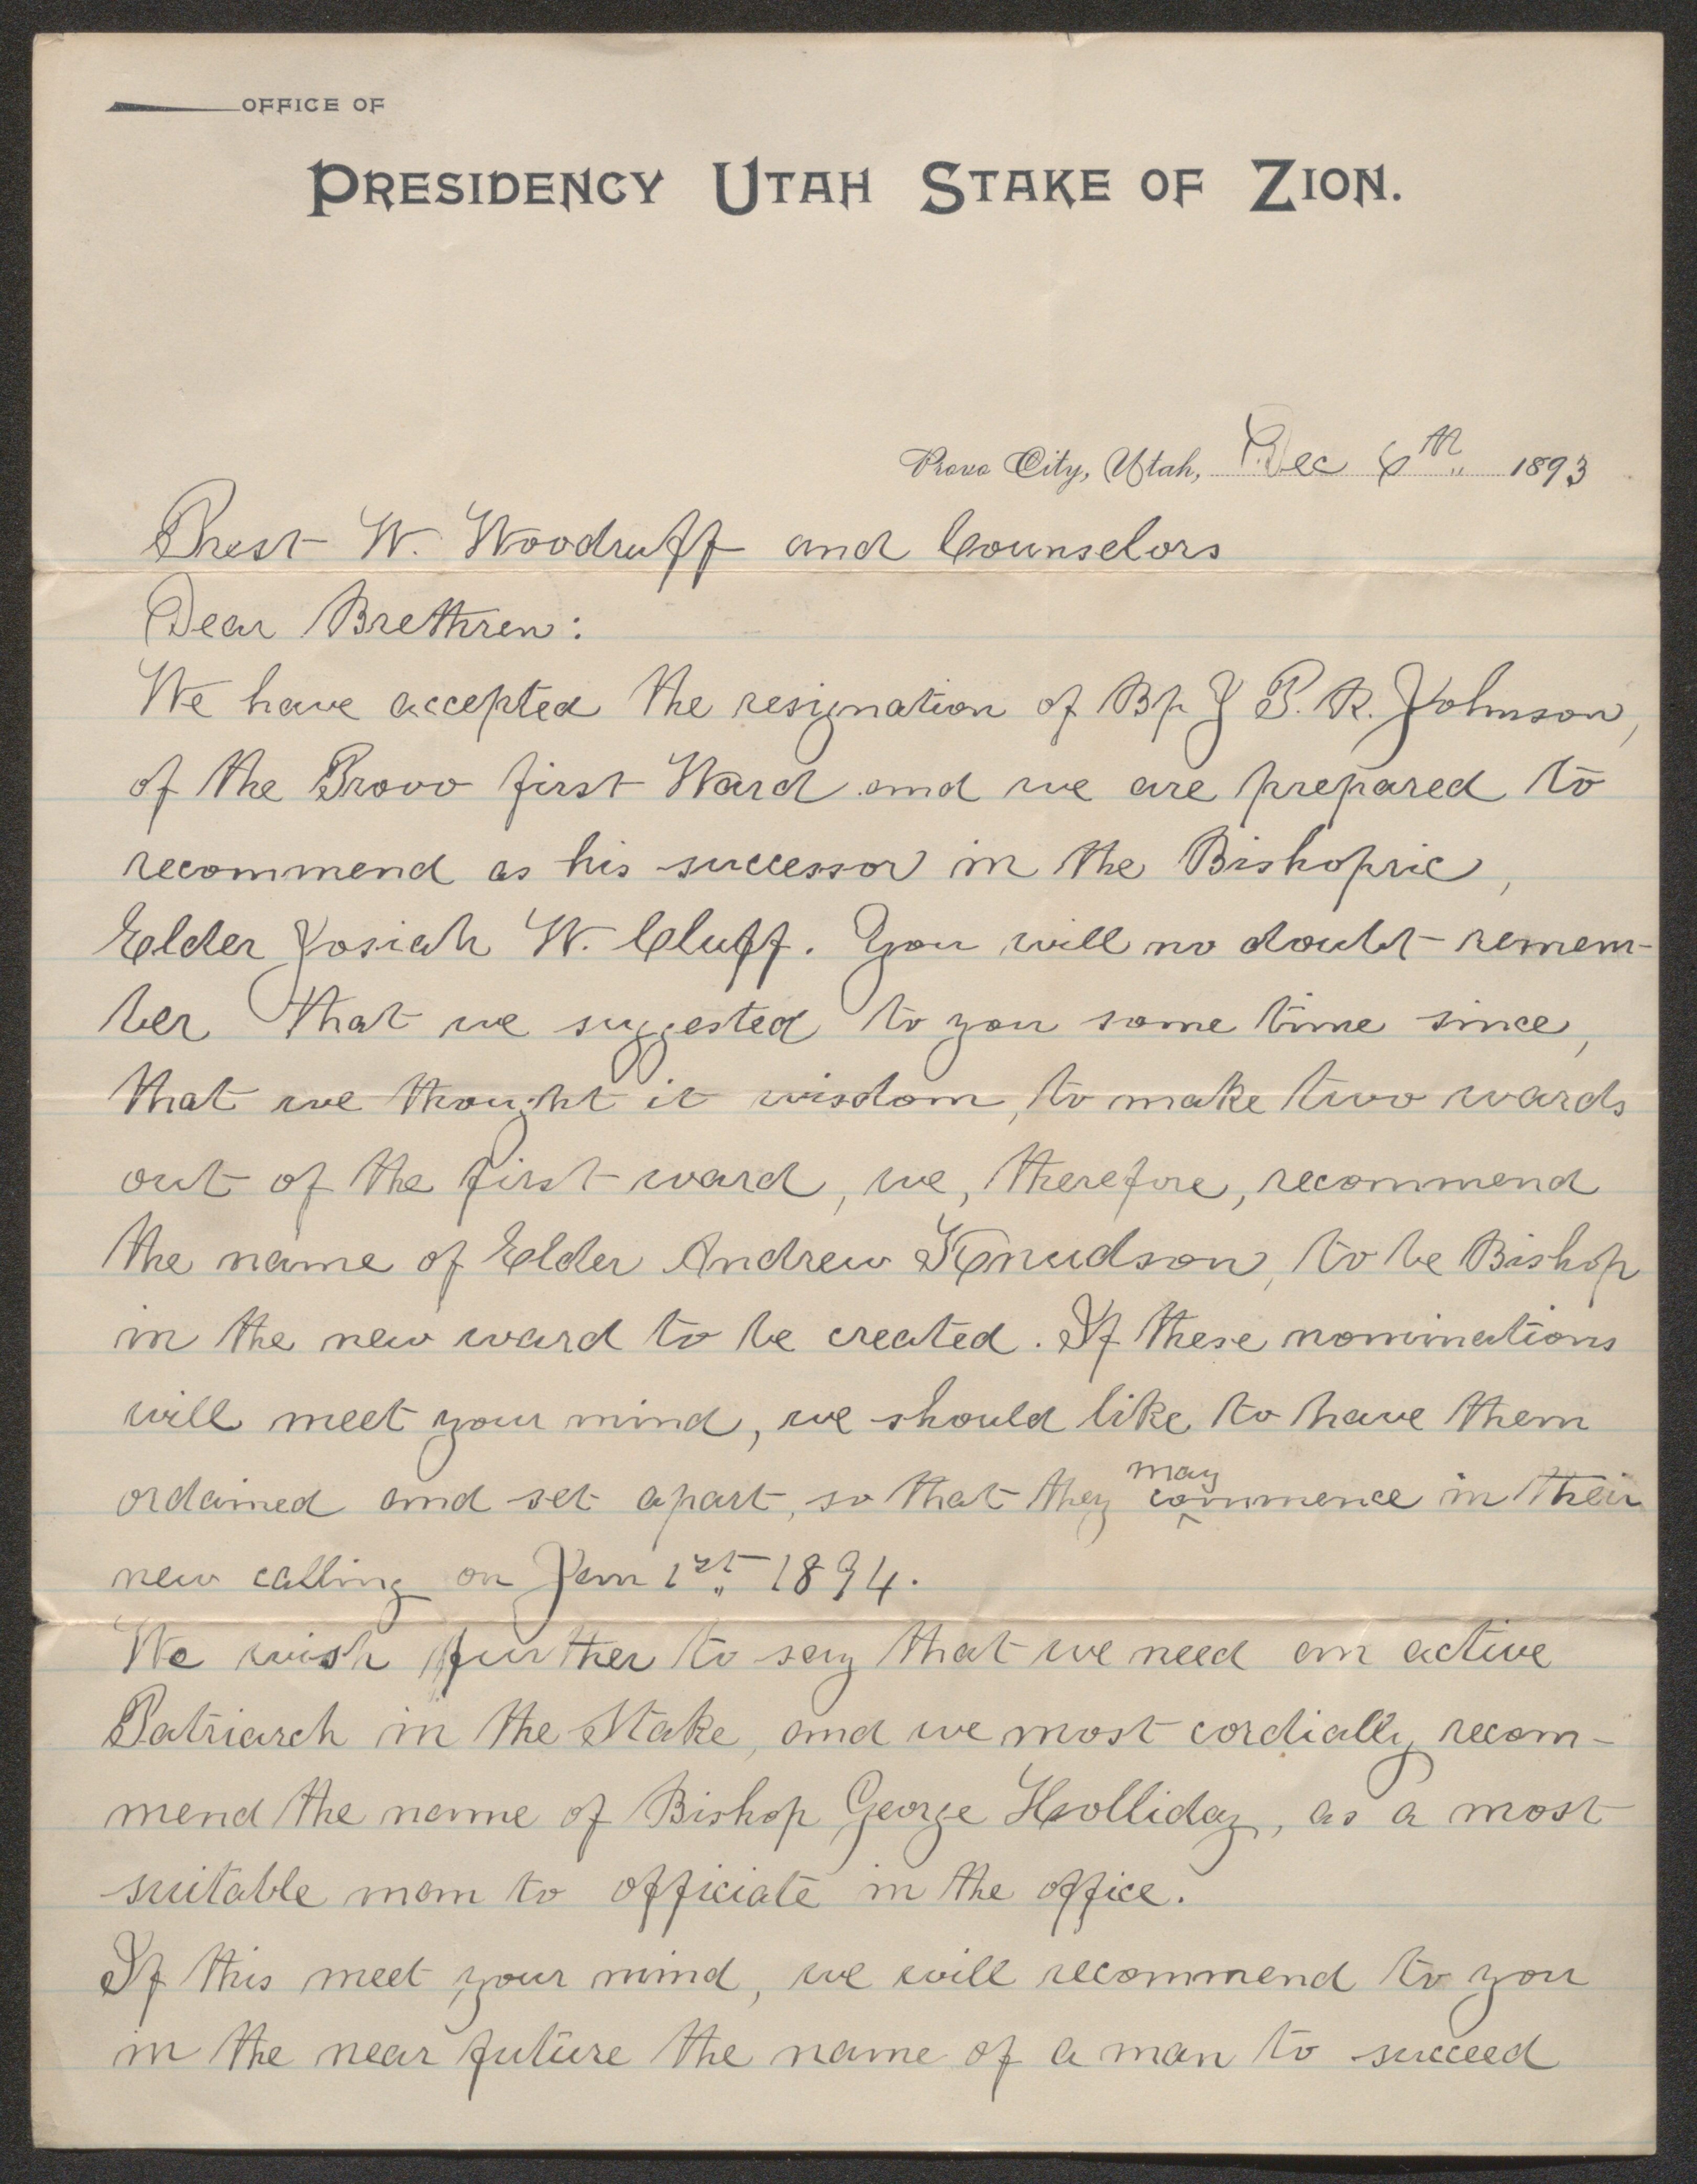 OFFICE OF
PRESIDENCY UTAH STAKE OF ZION.
Provo City, Utah, Dec 6th 1893
Prest W. Woodruff and Counselors
Dear Brethren:
We have accepted the resignation of Bp J P. R. Johnson,
of the Provo first Ward and we are prepared to
recommend as his successor in the Bishopric,
Elder Josiah W. Cluff. You will no doubt remem-
ber that we suggested to you some time since,
that we thought it wisdom, to make two wards
out of the first ward, we, therefore, recommend
the name of Elder Andrew Knudson, to be Bishop
in the new ward to be created. If these nominations
will meet your mind, we should like to have them
ordained and set apart, so that they may commence in their
new calling on Jan 1st 1894.
We wish further to say that we need an active
Patriarch in the Stake, and we most cordially recom-
mend the name of Bishop George Holliday, as a most
suitable man to officiate in the office.
If this meet your mind, we will recommend to you
in the near future the name of a man to succeed